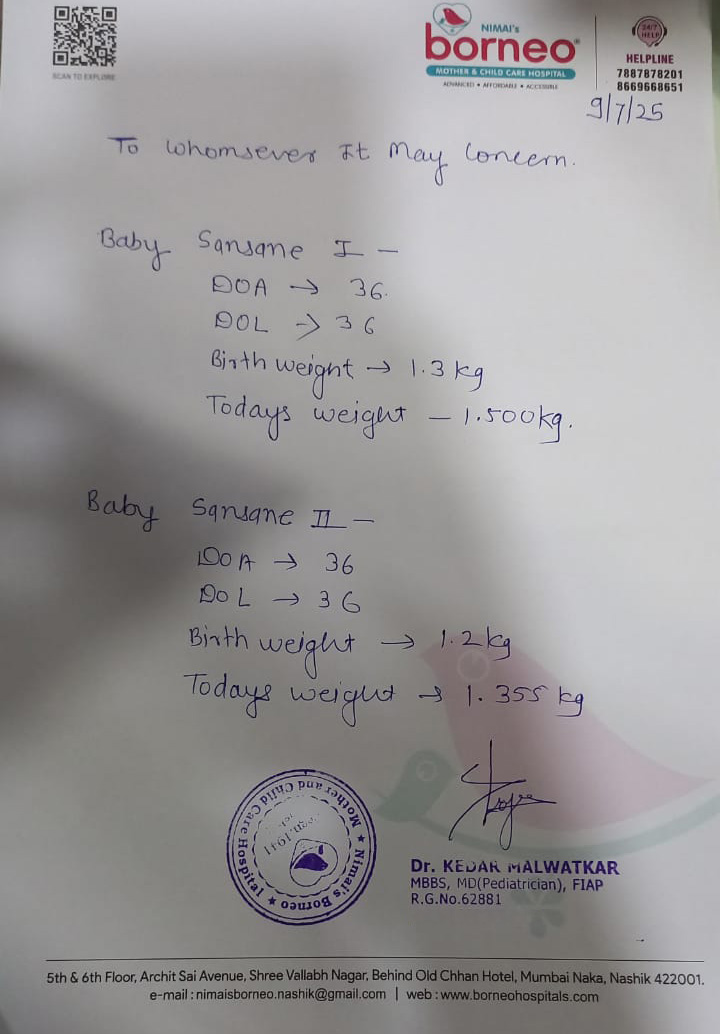 SCAN TO EXPLORE
NIMAI's
borneo
MOTHER & CHILD CARE HOSPITAL
ADVANCED • AFFORDABLE • ACCESSIBLE
24/7
HELP
HELPLINE
7887878201
8669668651
9/7/25
To whomsever It May Concern.
Baby Sansane I –
DOA → 36.
DOL → 36
Birth weight → 1.3 kg
Todays weight – 1.500kg.
Baby Sansane II –
DOA → 36
DOL → 36
Birth weight → 1.2 kg
Todays weight → 1.355 kg
Nimai's Borneo ★ Mother and Child Care Hospital ★
Dr. KEDAR MALWATKAR
MBBS, MD(Pediatrician), FIAP
R.G.No.62881
5th & 6th Floor, Archit Sai Avenue, Shree Vallabh Nagar, Behind Old Chhan Hotel, Mumbai Naka, Nashik 422001.
e-mail : nimaisborneo.nashik@gmail.com | web : www.borneohospitals.com